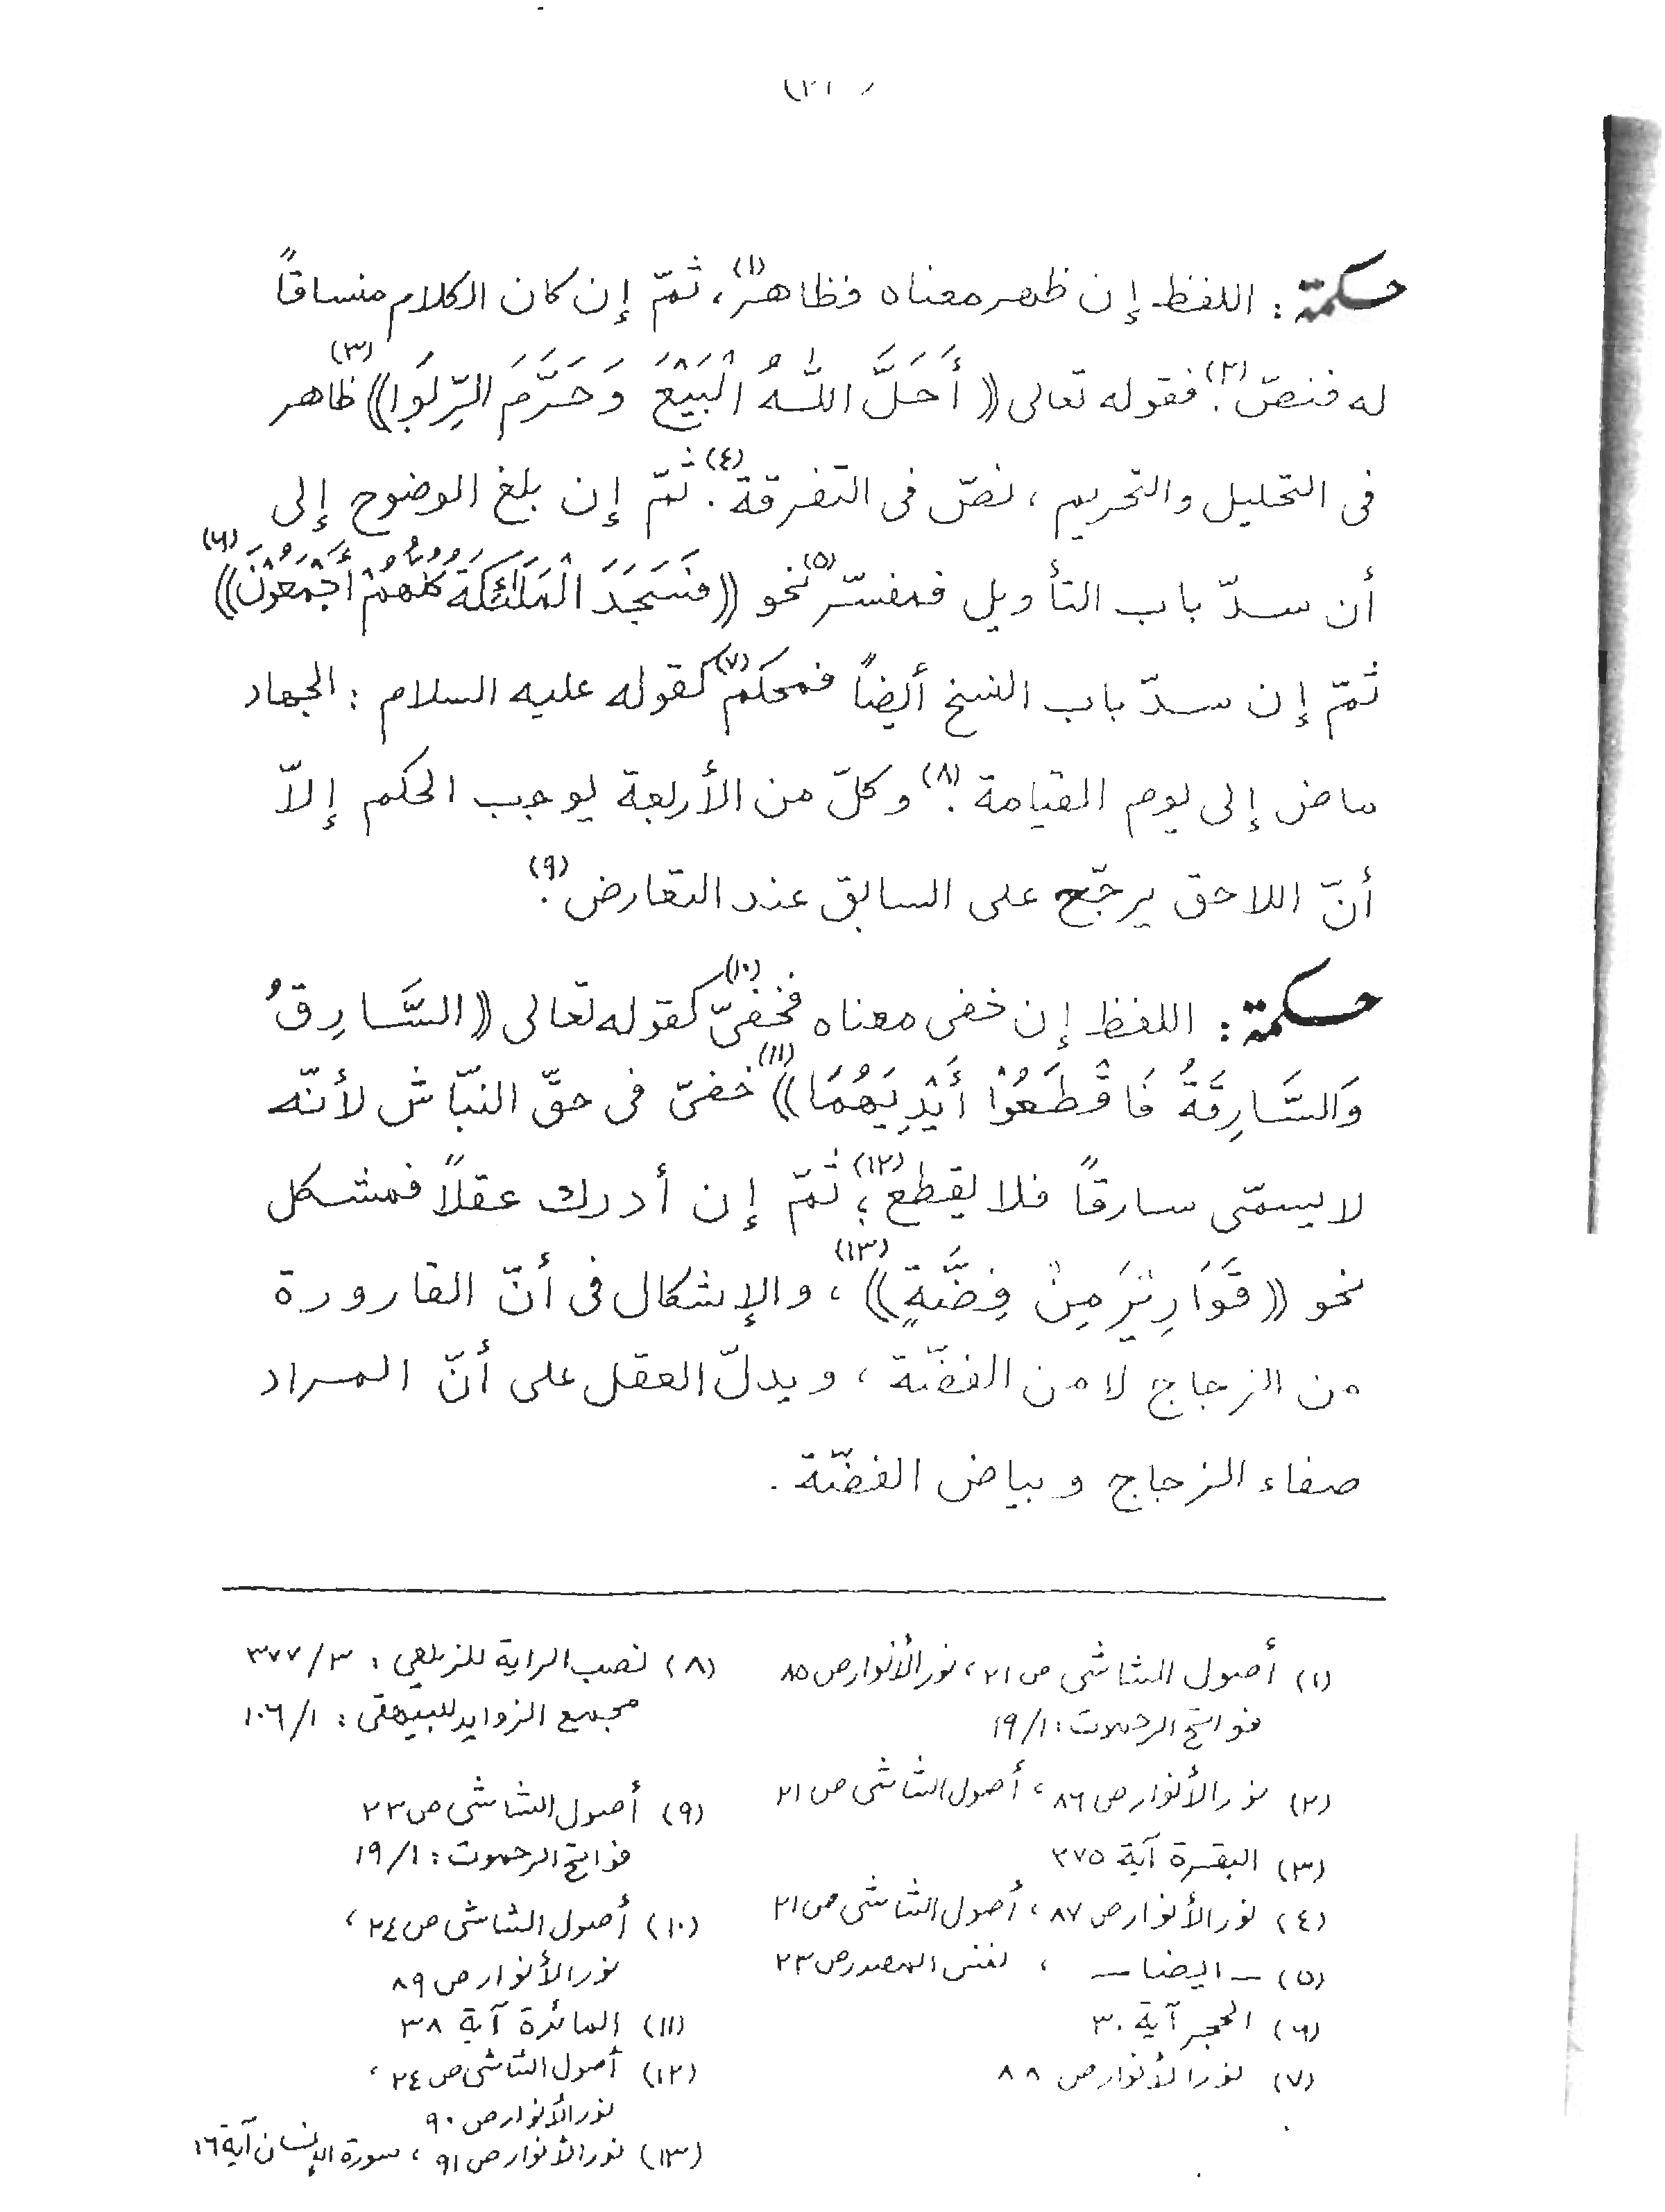 حكمة : اللفظ إن ظهر معناه فظاهر(١)، ثمّ إن كان الكلام منساقاً
له فنصّ(٢). فقوله تعالى ((أَحَلَّ اللّٰهُ الْبَيْعَ وَحَرَّمَ الرِّبٰوا))(٣) ظاهر
فى التحليل والتحريم ، نصّ فى التفرقة(٤). ثمّ إن بلغ الوضوح إلى
أن سدّ باب التأويل فمفسّر(٥) نحو ((فَسَجَدَ الْمَلٰئِكَةُ كُلُّهُمْ أَجْمَعُوْنَ))(٦)
ثمّ إن سدّ باب النسخ أيضاً فمحكم(٧) كقوله عليه السلام : الجهاد
ماض إلى يوم القيامة(٨). وكلّ من الأربعة يوجب الحكم إلاّ
أنّ اللاحق يرجّح على السابق عند التعارض(٩).
حكمة : اللفظ إن خفى معناه فخفىّ(١٠) كقوله تعالى ((السَّارِقُ
وَالسَّارِقَةُ فَاقْطَعُوْا أَيْدِيَهُمَا))(١١) خفىّ فى حقّ النبّاش لأنّه
لا يسمّى سارقاً فلا يقطع(١٢)؛ ثمّ إن أدرك عقلاً فمشكل
نحو ((قَوَارِيْرَ مِنْ فِضَّةٍ))(١٣)، والإشكال فى أنّ القارورة
من الزجاج لا من الفضّة ، ويدلّ العقل على أنّ المراد
صفاء الزجاج وبياض الفضّة .
(١) أصول الشاشى ص ٢١ ، نور الأنوار ص ٨٥
فواتح الرحموت : ١ / ١٩
(٢) نور الأنوار ص ٨٦ ، أصول الشاشى ص ٢١
(٣) البقرة آية ٢٧٥
(٤) نور الأنوار ص ٨٧ ، أصول الشاشى ص ٢١
(٥) ـ ايضا ـ ، نفس المصدر ص ٢٣
(٦) الحجر آية ٣٠
(٧) نور الأنوار ص ٨٨
(٨) نصب الراية للزيلعي : ٣ / ٣٧٧
مجمع الزوايد للبيهقى : ١ / ١٠٦
(٩) أصول الشاشى ص ٢٣
فواتح الرحموت : ١ / ١٩
(١٠) أصول الشاشى ص ٢٤ ،
نور الأنوار ص ٨٩
(١١) المائدة آية ٣٨
(١٢) أصول الشاشى ص ٢٤ ،
نور الأنوار ص ٩٠
(١٣) نور الأنوار ص ٩١ ، سورة الإنسان آية ١٦